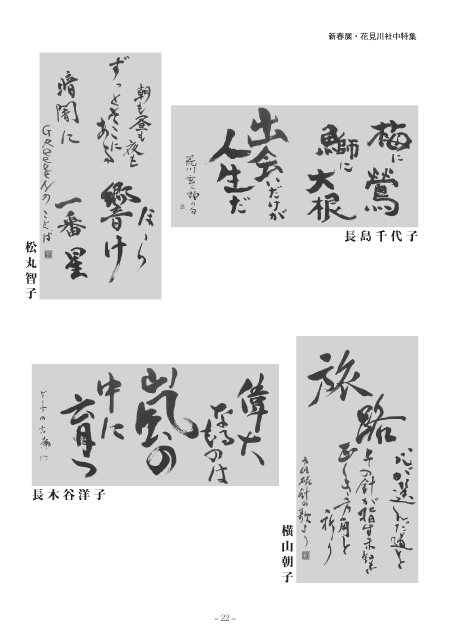 新春展・花見川社中特集
朝も昼も夜も
ずっとそこに
ある
暗闇に
響け
一番星
GReeeeNのことば
松丸智子
梅に
鶯
鰤に
大根
出会いだけが
人生だ
長島千代子
偉大
なるものは
嵐の
中に
育つ
ゲーテの言葉
長木谷洋子
旅
路
心が選んだ道を
正しき方角と
祈り
横山朝子
－22－